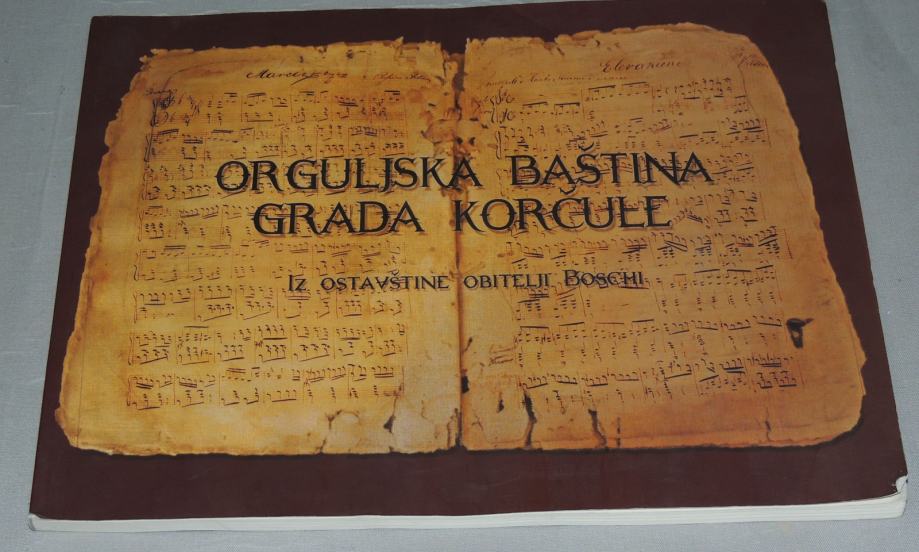 ORGULJSKA BAŠTINA
GRADA KORČULE
IZ OSTAVŠTINE OBITELJI BOSCHI